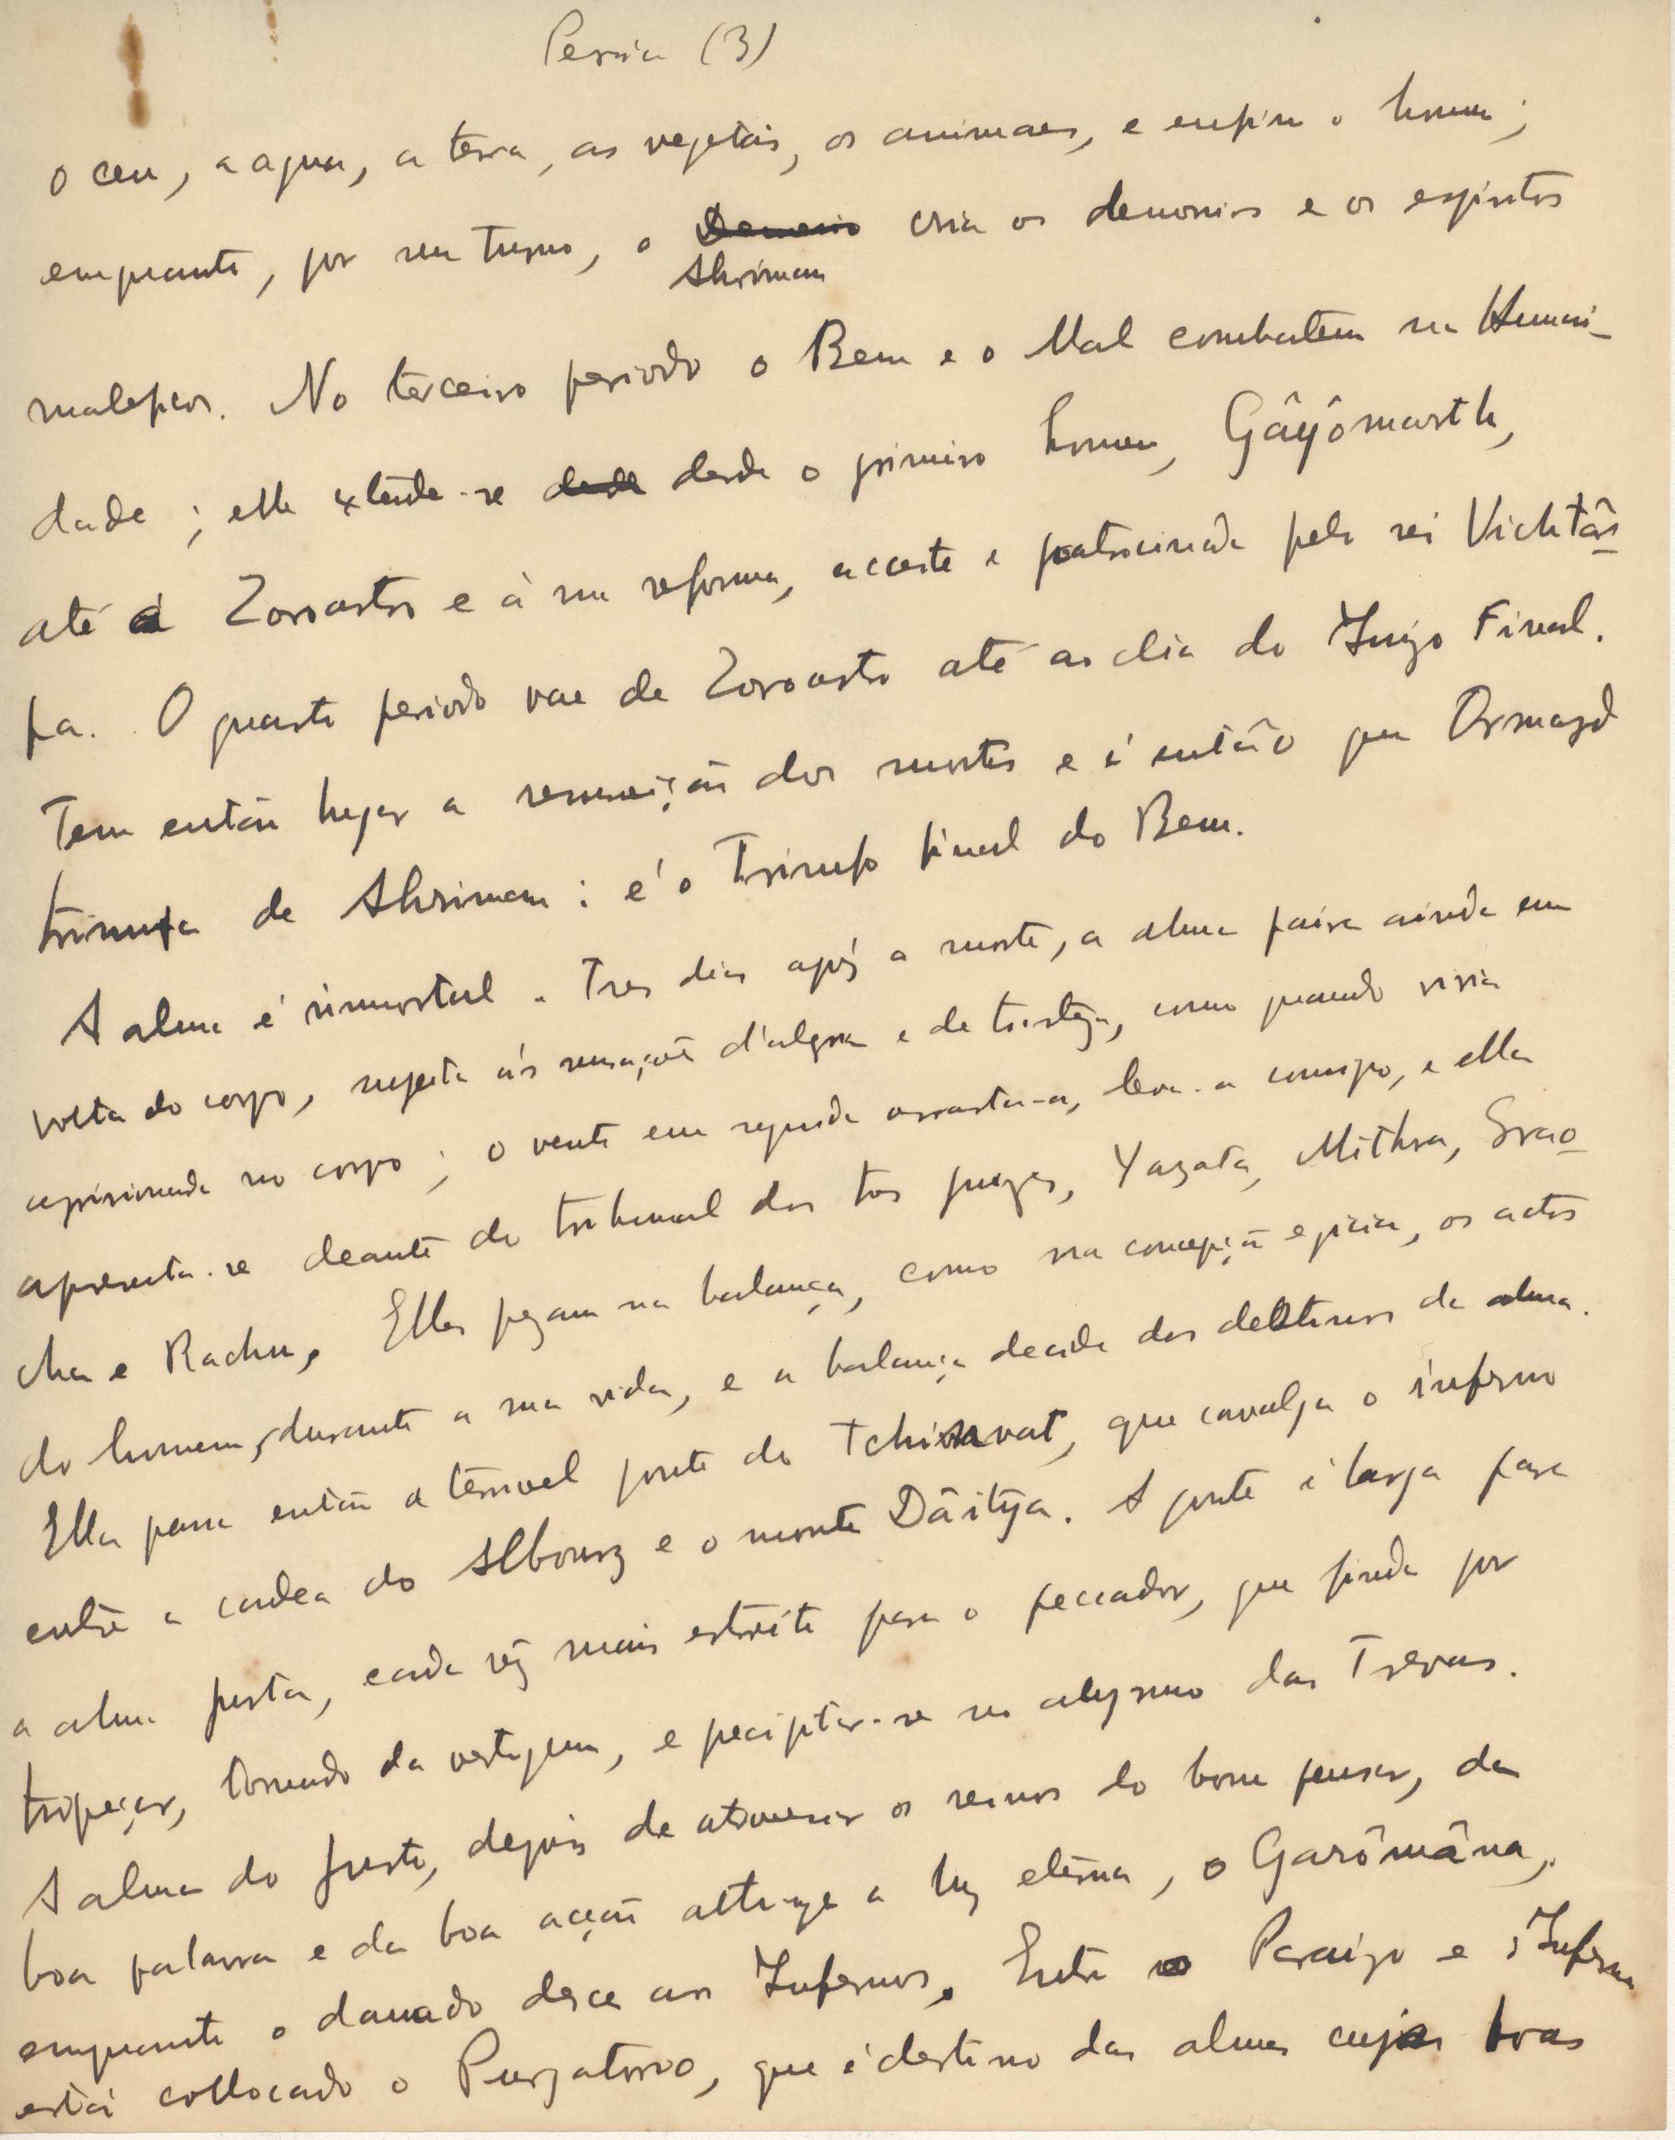 Persia (3)
o ceu, a agua, a terra, os vegetais, os animaes, e enfim o homem;
emquanto, por seu turno, o Demonio cria os demonios e os espiritos
Ahriman
maleficos. No terceiro periodo o Bem e o Mal combatem na Humani-
dade; elle extende-se desde desde o primeiro homem, Gâyômarth,
até a Zoroastro e á sua reforma, acceite e patrocinada pelo rei Vichtâs
pa. O quarto periodo vae de Zoroastro até ao dia do Juizo Final.
Tem então lugar a resurreição dos mortos e é então que Ormazd
triumfa de Ahriman: é o Triunfo final do Bem.
A alma é immortal. Tres dias após a morte, a alma paira ainda em
volta do corpo, sujeita ás sensações d'alegria e de tristeza, como quando vivia
aprisionada no corpo; o vento em seguida arrasta-a, leva-a comsigo, e ella
apresenta-se deante do tribunal dos tres juizes, Yazata, Mithra, Srao
cha e Rachnu. Elles pezam na balança, como na concepção egipcia, os actos
do homem, durante a sua vida, e a balança decide dos destinos da alma.
Ella passa então a terrivel ponte do Tchinvat, que cavalga o inferno
entre a cadea do Albourz e o monte Dâïtya. A ponte é larga para
a alma justa, cada vez mais estreita para o peccador, que finda por
tropeçar, tomado da vertigem, e precipitar-se no abysmo das Trevas.
A alma do justo, depois de atravessar os reinos do bom pensar, da
boa palavra e da boa acção attinge a luz eterna, o Garômâna,
emquanto o danado desce aos Infernos. Entre o Paraizo e o Inferno
está collocado o Purgatorio, que é destino das almas cujas boas